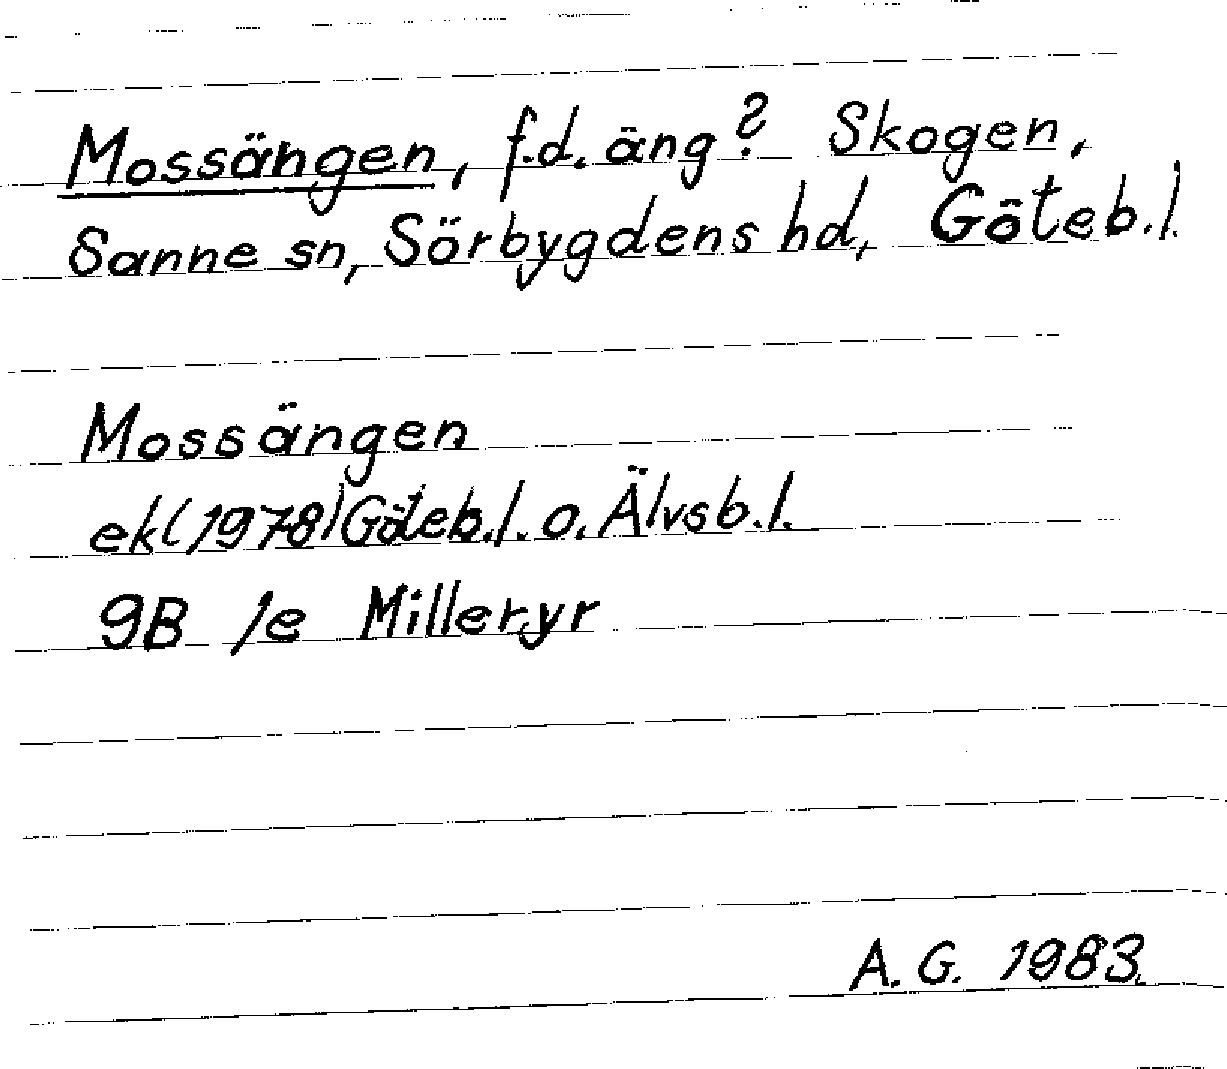 Mossängen, f.d. äng? Skogen,
Sanne sn, Sörbygdens hd, Göteb.l.
Mossängen
ek(1978)Göteb.l. o. Älvsb.l.
9B 1e Milleryr
A. G. 1983.